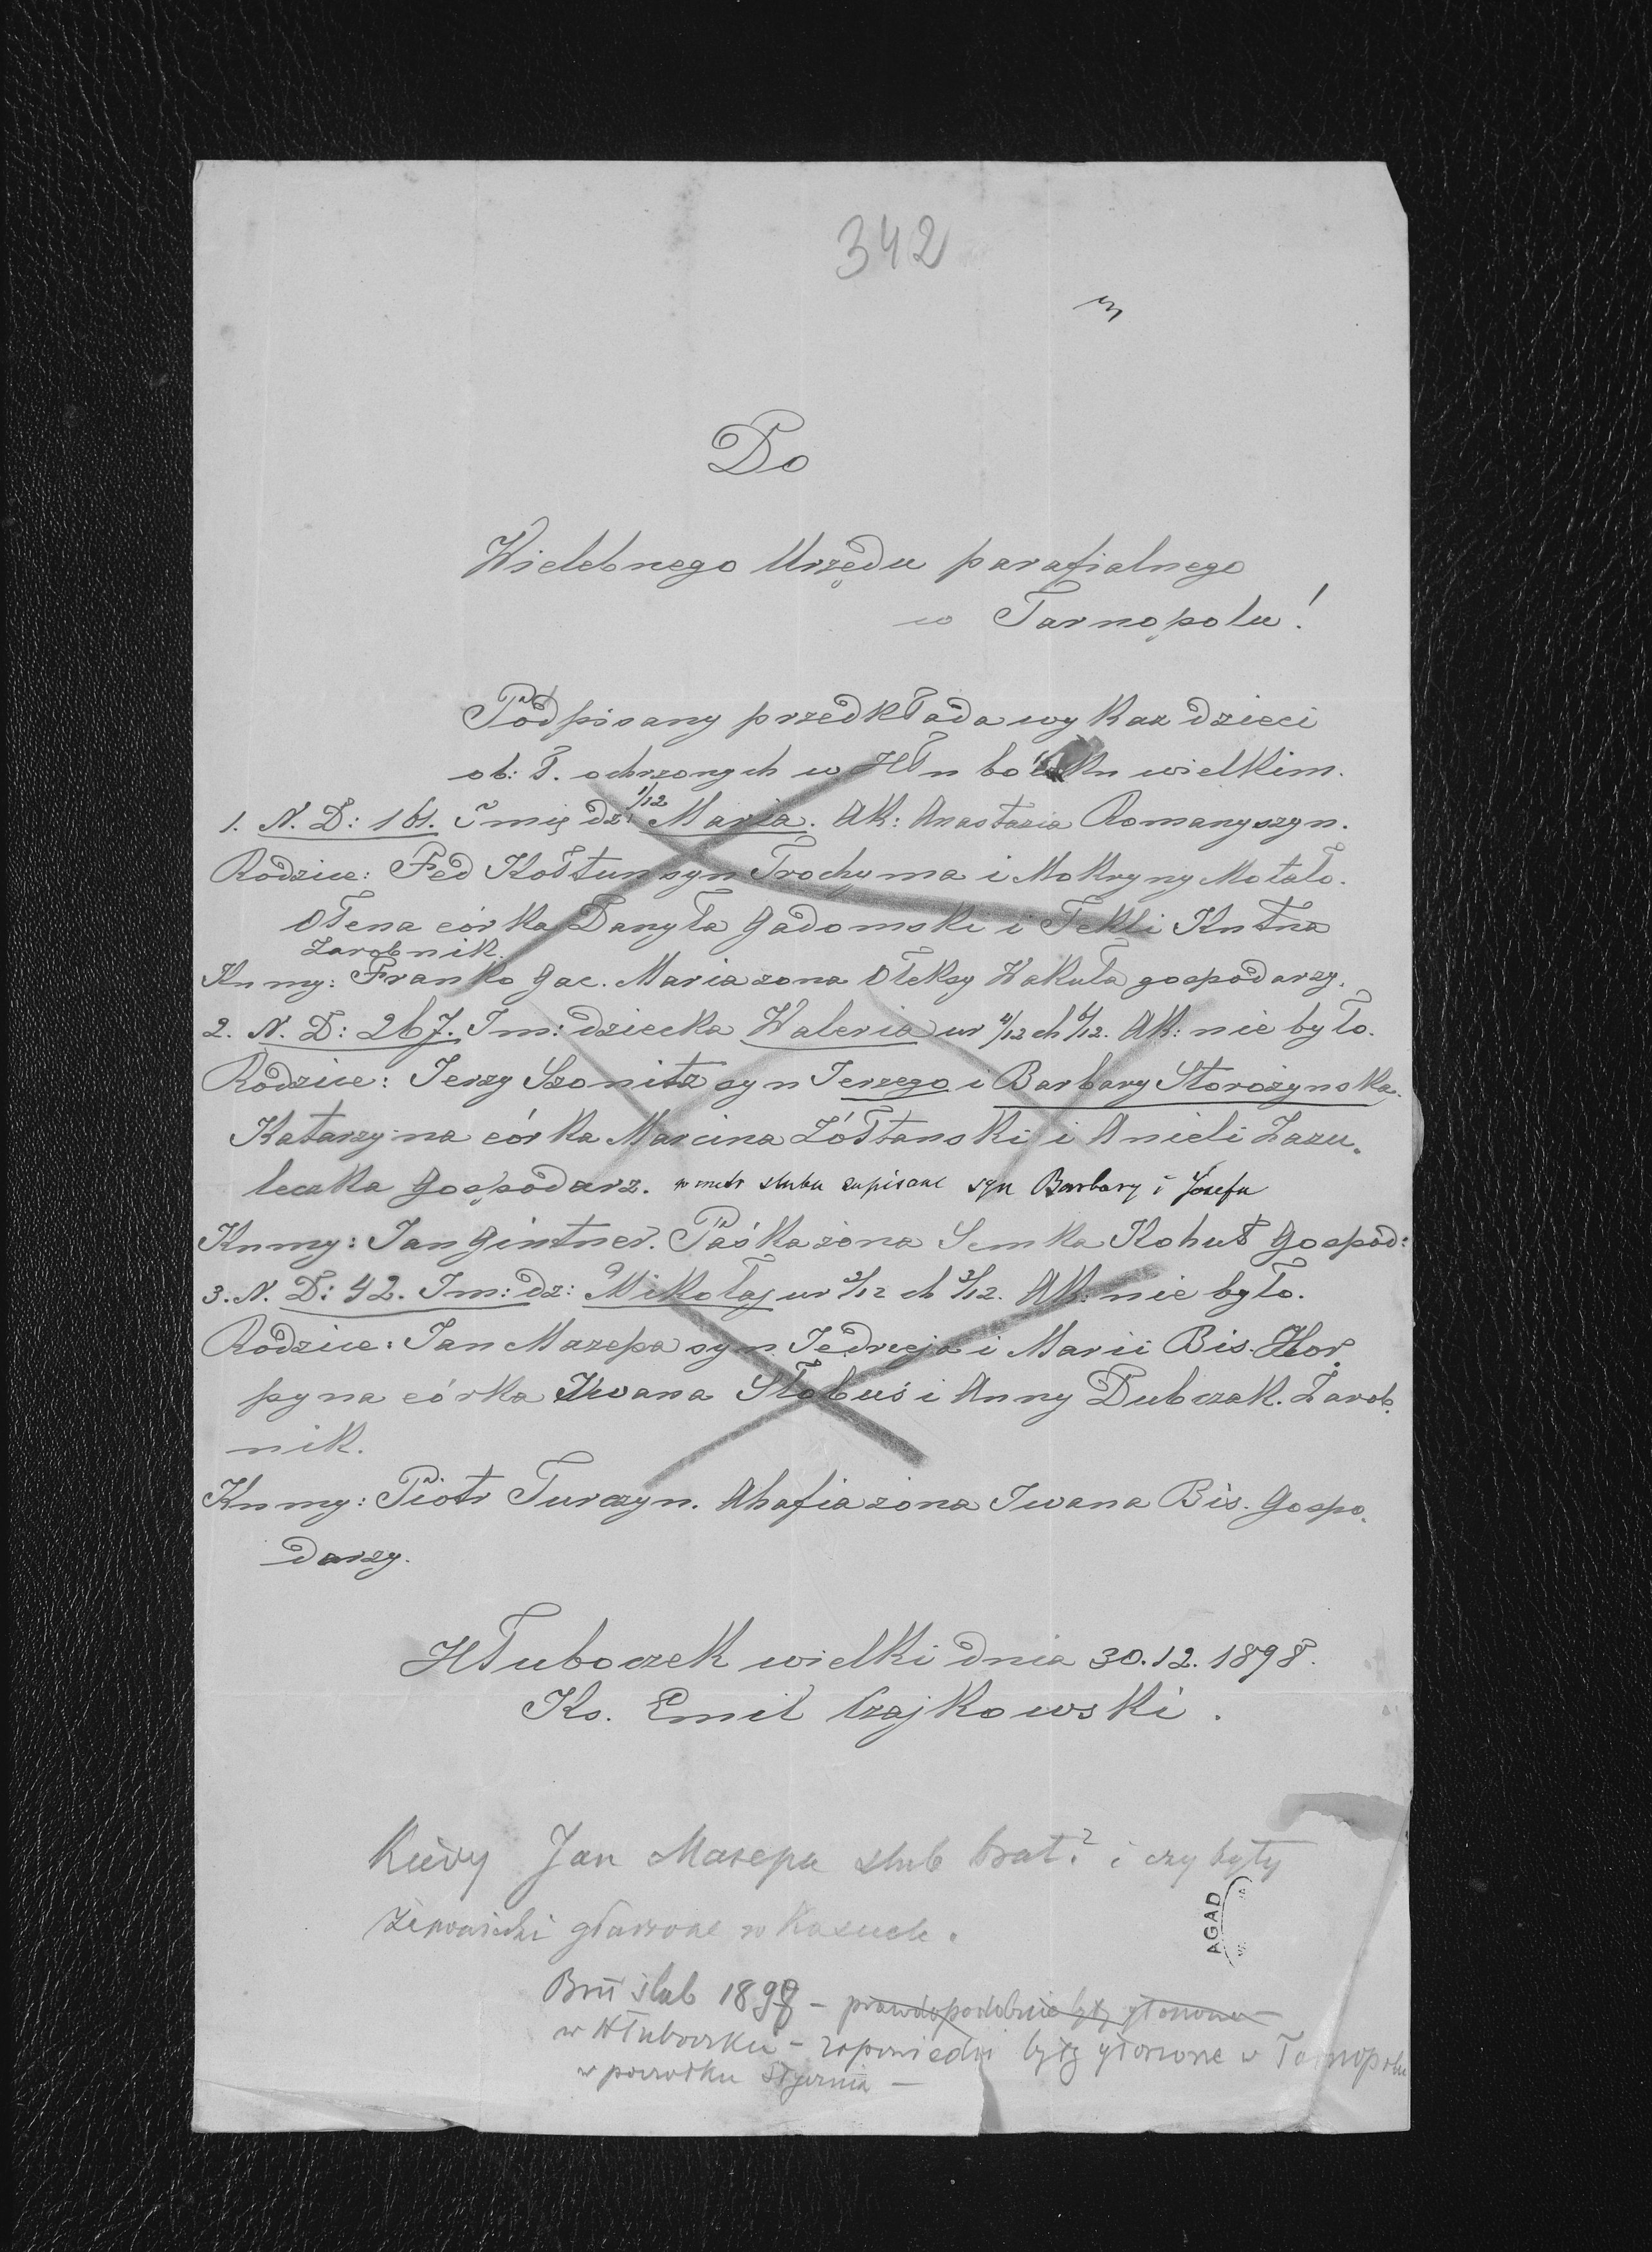 342
3
Do
Wielebnego Urzędu parafialnego
w Tarnopolu!
Podpisany przedkłada wykaz dzieci
ob: ł. ochrzonych w Hłuboczku wielkim.
1. N. D: 161. Imię dz: 1/12 Maria. AK: Anastazia Romanyszyn.
Rodzice: Fed Kołtun syn Trochyma i Mokryny Motało.
Ołena córka Danyła Gadomski i Tekli Kutna
zarobnik.
Kumy: Franko Gac. Maria zona Ołeksy Wakuła gospodarzy.
2. N. D: 267. Im: dziecka Waleria ur 4/12 ch 6/12. AK: nie było.
Rodzice: Jerzy Szonitz syn Jerzego i Barbary Storożynska.
Katarzyna córka Marcina Żółtanski i Anieli Zazu.
leczka Gospodarz. w metr slubu zapisane syn Barbary i Josefa
Kumy: Jan Gintner. Paśka żona Semka Kohut Gospod:
3. N. D: 42. Im: dz: Mikołaj ur 2/12 ch 3/12. AK: nie było.
Rodzice: Jan Mazepa syn Jedrzeja i Marii Bis. Hor.
pyna córka Iwana Słobuś i Anny Dubczak. Zarob.
nik.
Kumy: Piotr Turczyn. Ahafia zona Iwana Bis. Gospo.
darzy.
Hłuboczek wielki dnia 30.12.1898.
Ks. Emil Czajkowski.
Kiedy Jan Masepa slub brał? i czy były
zapowiedzi głaszone w
Brał ślub 1898 – prawdopodobnie były głoszone
w Hłuboczku – zapowiedzi były głoszone w Tarnopolu
w początku stycznia –
AGAD